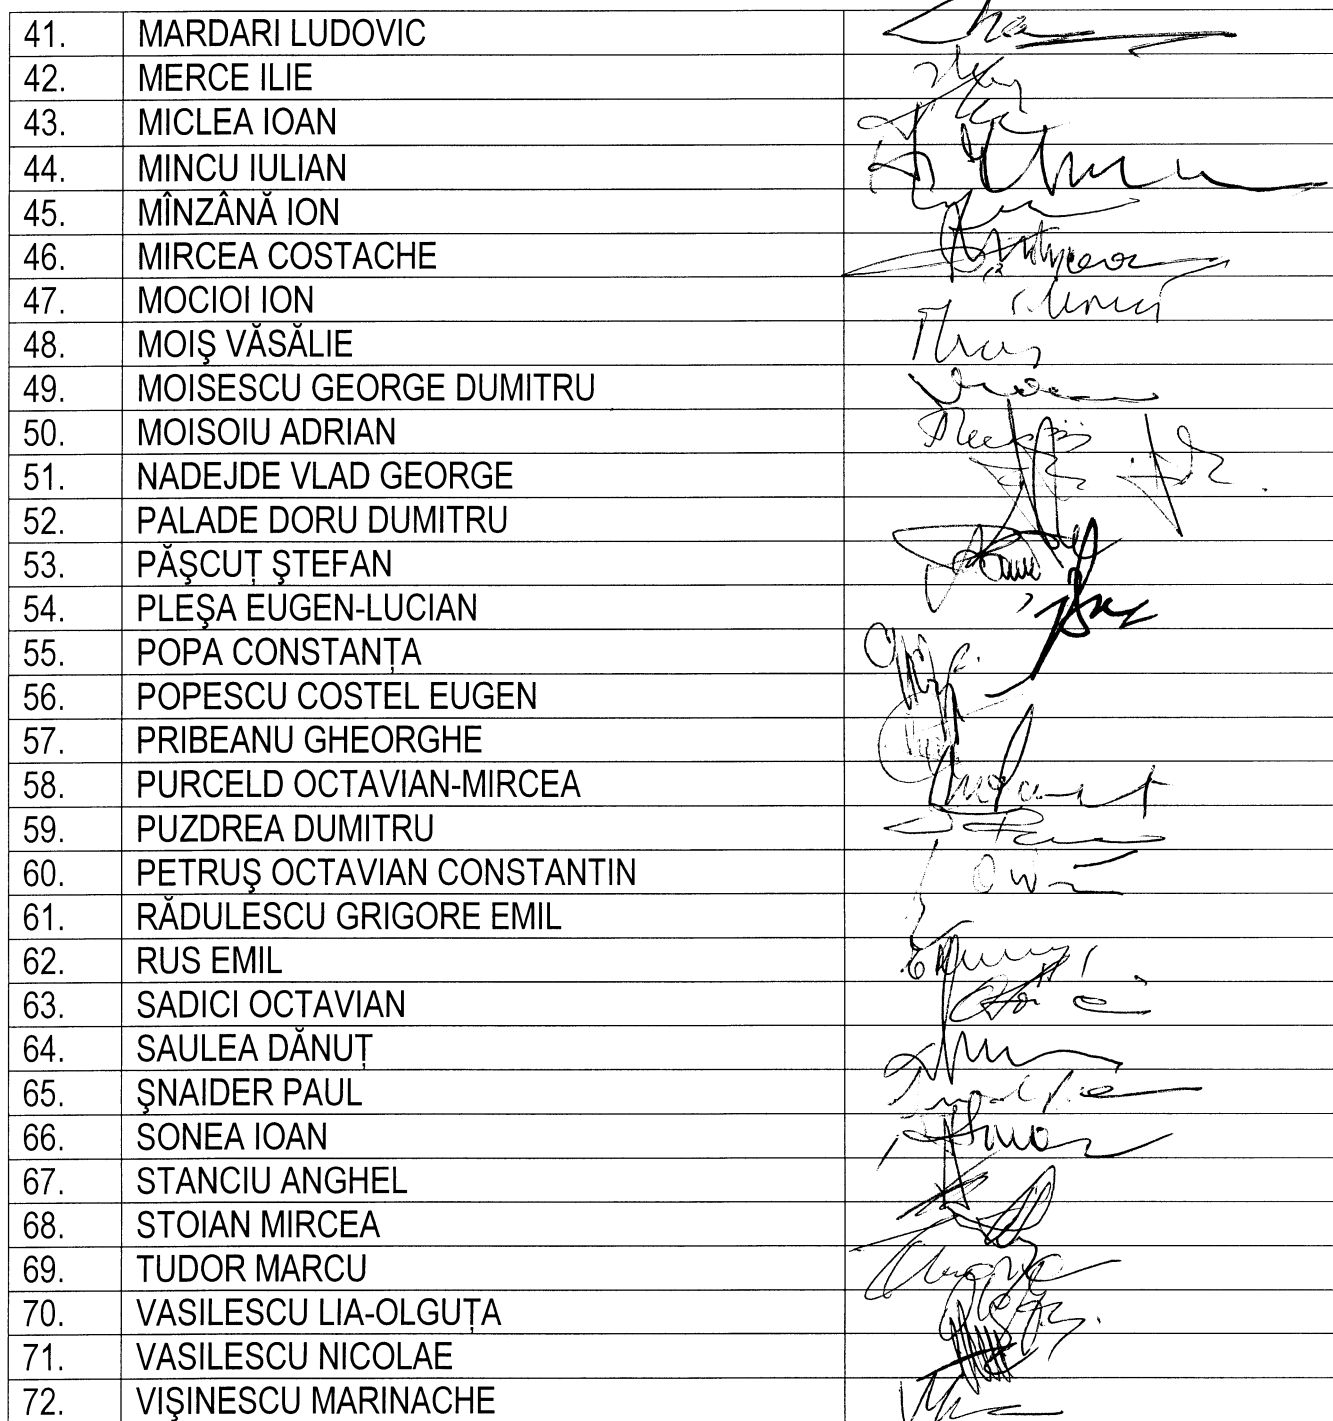 41. MARDARI LUDOVIC
42. MERCE ILIE
43. MICLEA IOAN
44. MINCU IULIAN
45. MÎNZÂNĂ ION
46. MIRCEA COSTACHE
47. MOCIOI ION
48. MOIŞ VĂSĂLIE
49. MOISESCU GEORGE DUMITRU
50. MOISOIU ADRIAN
51. NADEJDE VLAD GEORGE
52. PALADE DORU DUMITRU
53. PĂŞCUŢ ŞTEFAN
54. PLEŞA EUGEN-LUCIAN
55. POPA CONSTANŢA
56. POPESCU COSTEL EUGEN
57. PRIBEANU GHEORGHE
58. PURCELD OCTAVIAN-MIRCEA
59. PUZDREA DUMITRU
60. PETRUŞ OCTAVIAN CONSTANTIN
61. RĂDULESCU GRIGORE EMIL
62. RUS EMIL
63. SADICI OCTAVIAN
64. SAULEA DĂNUŢ
65. ŞNAIDER PAUL
66. SONEA IOAN
67. STANCIU ANGHEL
68. STOIAN MIRCEA
69. TUDOR MARCU
70. VASILESCU LIA-OLGUŢA
71. VASILESCU NICOLAE
72. VIŞINESCU MARINACHE